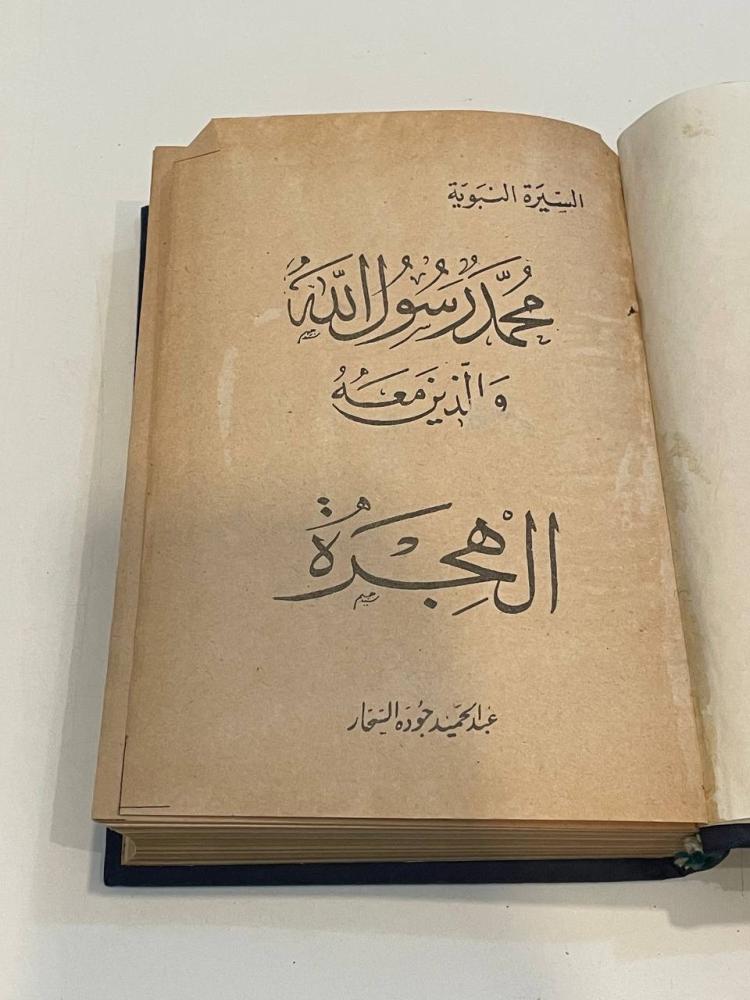 السيرة النبوية
محمد رسول الله
والذين معه
الهجرة
عبد الحميد جوده السحار